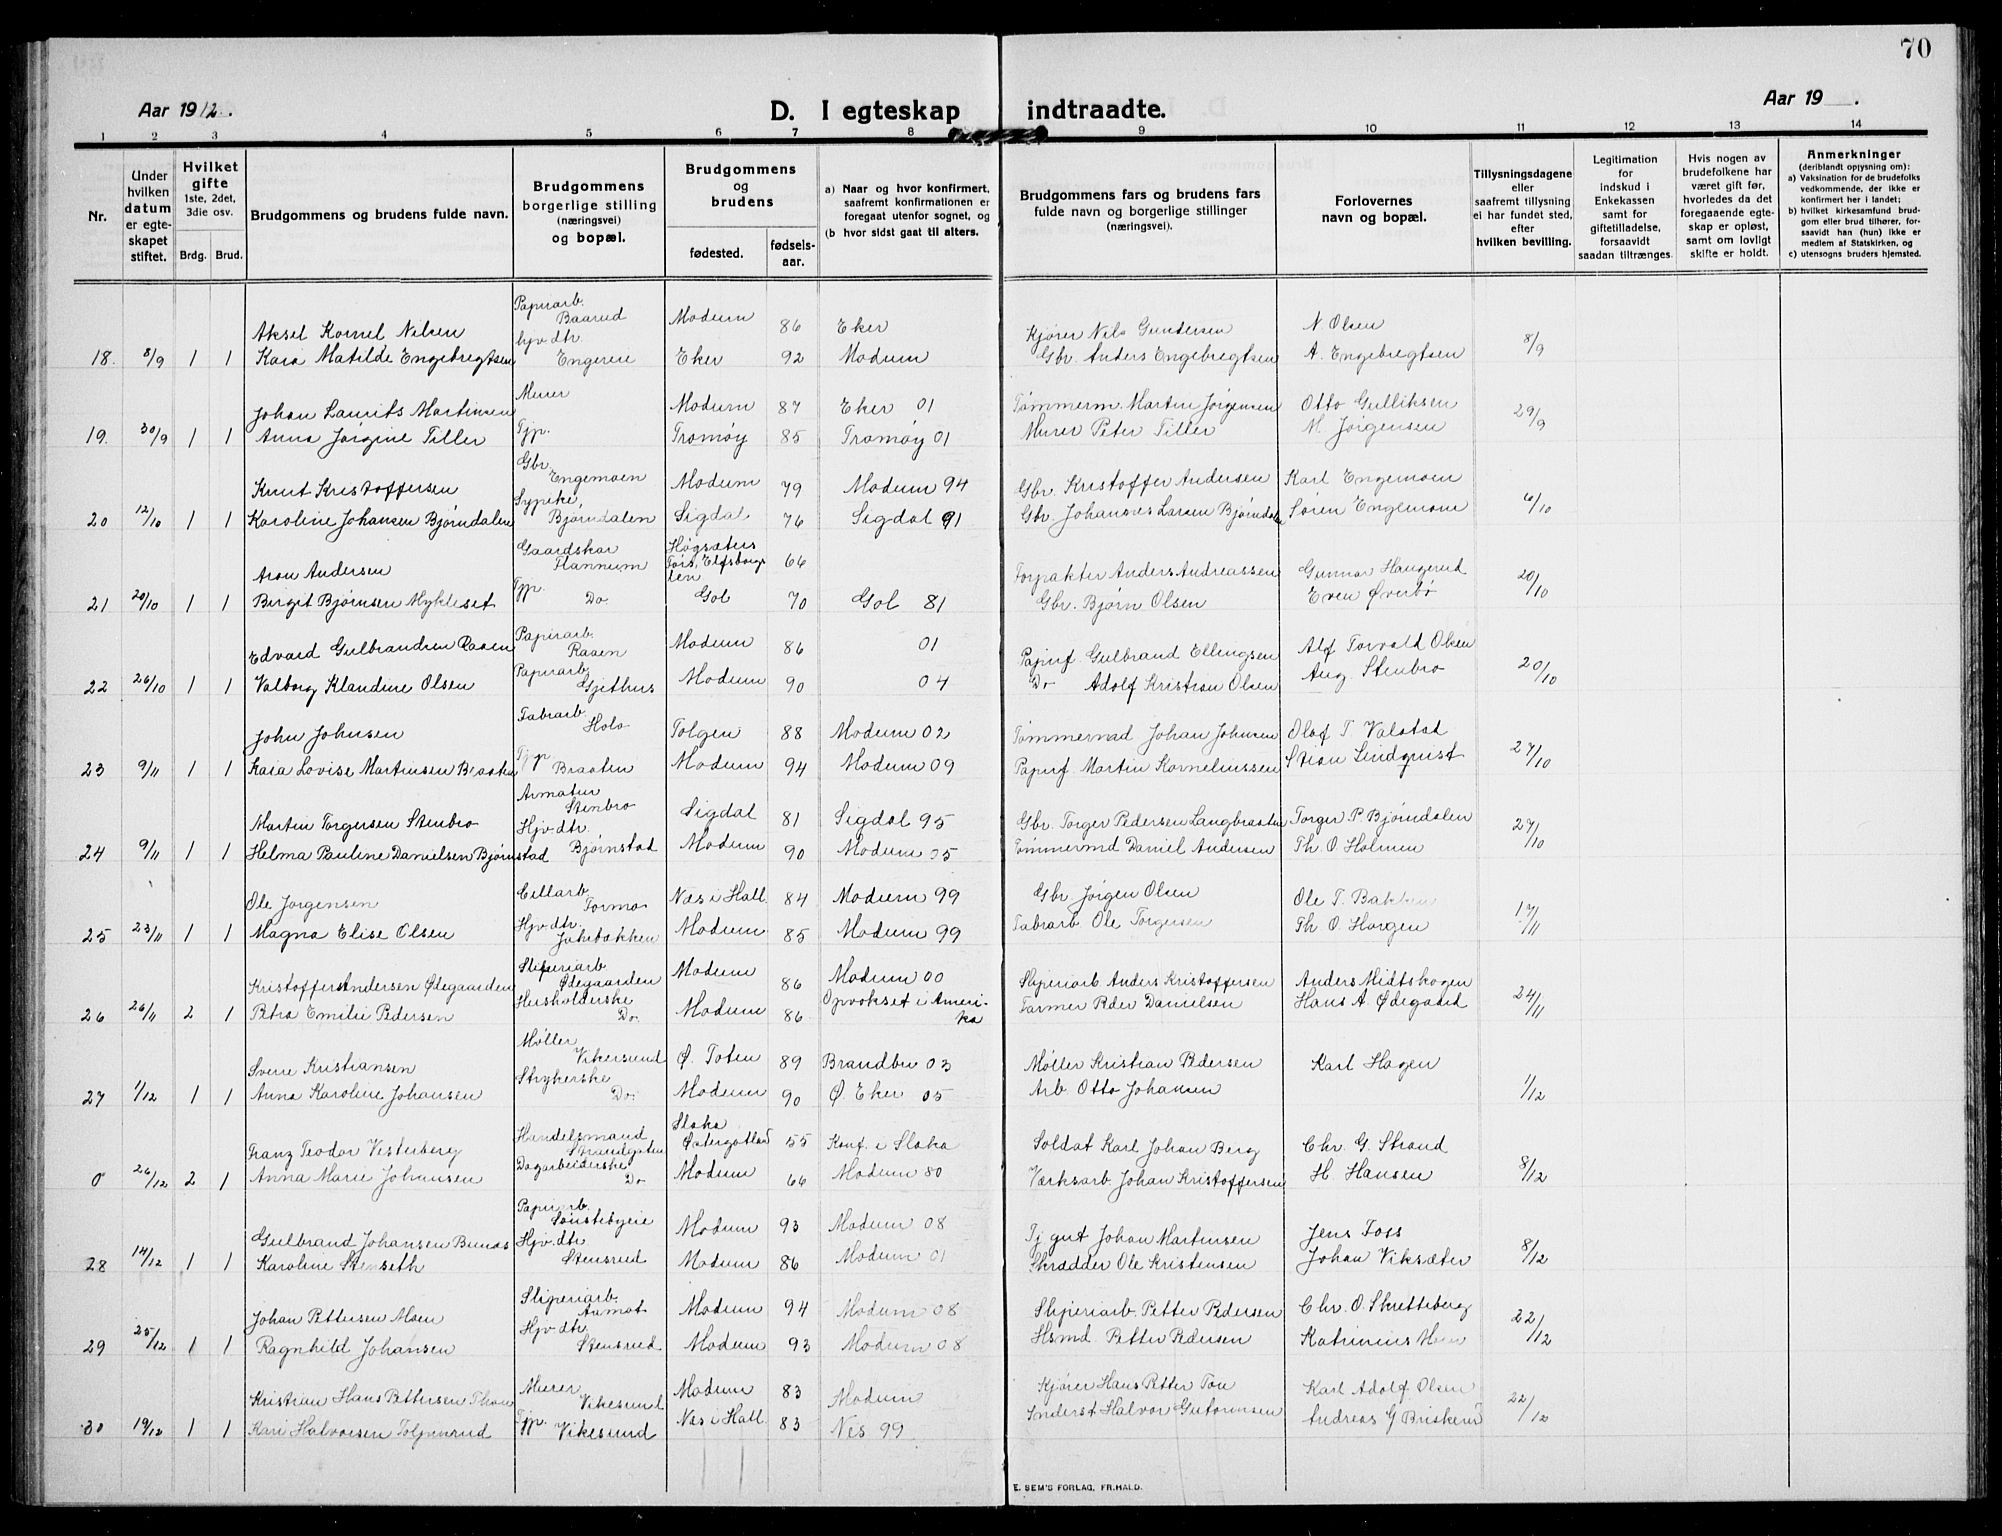 70
Aar 1912.
D. I egteskap indtraadte.
Aar 19 .
1 2 3 4 5 6 7 8 9 10 11 12 13 14
Nr.
Under hvilken datum er egteskapet stiftet.
Hvilket gifte 1ste, 2det, 3die osv.
Brdg. Brud.
Brudgommens og brudens fulde navn.
Brudgommens borgerlige stilling (næringsvei) og bopæl.
Brudgommens og brudens
fødested. fødselsaar.
a) Naar og hvor konfirmert, saafremt konfirmationen er foregaat utenfor sognet, og
(b hvor sidst gaat til alters.
Brudgommens fars og brudens fars fulde navn og borgerlige stillinger (næringsvei).
Forlovernes navn og bopæl.
Tillysningsdagene eller saafremt tillysning ei har fundet sted, efter hvilken bevilling.
Legitimation for indskud i Enkekassen samt for giftetilladelse, forsaavidt saadan tiltrænges.
Hvis nogen av brudefolkene har været gift før, hvorledes da det foregaaende egteskap er opløst, samt om lovligt skifte er holdt.
Anmerkninger (deriblandt opysning om):
a) Vaksination for de brudefolks vedkommende, der ikke er konfirmert her i landet;
b) hvilket kirkesamfund brudgom eller brud tilhører, forsaavidt han (hun) ikke er medlem af Statskirken, og
c) utensogns bruders hjemsted.
Aksel Kornel Nilsen Papirarb. Baarud Modum 86 Eker Kjører Nils Gundersen N Olsen
18. 8/9 1 1 Kaia Matilde Engebregtsen hjv dtr. Engerie Eker 92 Modum Gbr. Anders Engebregtsen A. Engebregtsen 8/9
Johan Laurits Martinsen Murer Modum 87 Eker 01 Tømmerm. Martin Jørgensen Otto Gulliksen
19. 30/9 1 1 Anna Jørgine Tiller Tjp. Tromøy 85 Tromøy 01 Murer Peter Tiller M. Jørgensen 29/9
Knut Kristoffersen Gbr. Engemoen Modum 79 Modum 94 Gbr Kristoffer Andersen Karl Engemoen
20 12/10 1 1 Karoline Johansen Bjørndalen Sypike Bjørndalen Sigdal 76 Sigdal 91 Gbr. Johannes Larsen Bjørndalen Søren Engemoen 6/10
Aron Andersen Gaardskar Hannum Høgsæters Tors, Elfsborgs len 66 Torpakter Anders Andreassen Gunnar Haugerud
21 20/10 1 1 Birgit Bjørnsen Mykleset Tjp. Do Gol 70 Gol 81 Gbr. Bjørn Olsen Even Øverbø 20/10
Edvard Gulbrandsen Raaen Papirarb. Raaen Modum 86 01 Papirf. Gulbrand Ellingsen Alf Torvald Olsen
22 26/10 1 1 Valborg Klaudine Olsen Papirarb. Gjethus Modum 90 04 Do Adolf Kristian Olsen Aug. Stenbro 20/10
John Johnsen Fabrarb. Holo Tolgen 88 Modum 02 Tømmermd Johan Johnsen Olof T. Valstad
23 9/11 1 1 Kaia Lovise Martinsen Braaten Tjp Braaten Modum 94 Modum 09 Papirf. Martin Kornelinssen Stian Lindqvist 27/10
Martin Torgersen Stenbro Armatur Stenbro Sigdal 81 Sigdal 95 Gbr. Torger Pedersen Langbraaten Torger P. Bjørndalen
24 9/11 1 1 Helma Pauline Danielsen Bjørnstad Hjv dtr. Bjørnstad Modum 90 Modum 05 Tømmermd Daniel Andersen Th. O Holmen 27/10
Ole Jørgensen Cellarb Formo Næs i Hall. 84 Modum 99 Gbr Jørgen Olsen Ole T. Bakken
25 23/11 1 1 Magna Elise Olsen Hjv dtr. Jakebakken Modum 85 Modum 99 Fabrarb Ole Torgersen Th O. Horgen 17/11
Kristoffer Andersen Ødegaarden Sliperiarb Ødegaarden Modum 86 Modum 00 Sliperiarb Anders Kristoffersen Anders Midtskogen
26 26/11 2 1 Petra Emilie Pedersen Husholderske Do. Modum 86 Opvokset i Amerika Farmer Peder Danielsen Hans A. Ødegaard 24/11
Sverre Kristiansen Møller Vikersund Ø. Toten 89 Brandbu 03 Møller Kristian Pedersen Karl Hagen
27 1/12 1 1 Anna Karoline Johansen Strykerske Do. Modum 90 Ø. Eker 05 Arb Otto Johansen 1/12
Franz Teodor Vesterberg Handelsmand Strandgaten Slaka Østergotland 55 Konf. i Slaka Soldat Karl Johan Berg Chr. G. Strand
0 26/12 2 1 Anna Marie Johansen Dagarbeiderske Do Modum 66 Modum 80 Værksarb Johan Kristoffersen H. Hansen 8/12
Gulbrand Johansen Bunæs Papirarb. Sønstebyeie Modum 93 Modum 08 Tj gut Johan Martinsen Jens Foss
28 14/12 1 1 Karoline Stenseth Hjv. dtr Stensrud Modum 86 Modum 01 Skrædder Ole Kristensen Johan Viksæter 8/12
Johan Pettersen Moen Sliperiarb. Aamot Modum 94 Modum 08 Sliperiarb. Petter Pedersen Chr. O. Skretteberg
29 25/12 1 1 Ragnhild Johansen Hjv dtr. Stensrud Modum 93 Modum 08 Hsmd. Petter Pedersen Katrinius Moen 22/12
Kristian Hans Pettersen Thon Murer Vikesund Modum 83 Modum Kjører Hans Petter Ton Karl Adolf Olsen
30 19/12 1 1 Kari Halvorsen Toljerud Tjp. Vikesund Næs i Hall. 83 Nes 99 Inderst Halvor Guttormsen Andreas G Briskerud 22/12
E. SEM'S FORLAG, FR.HALD.